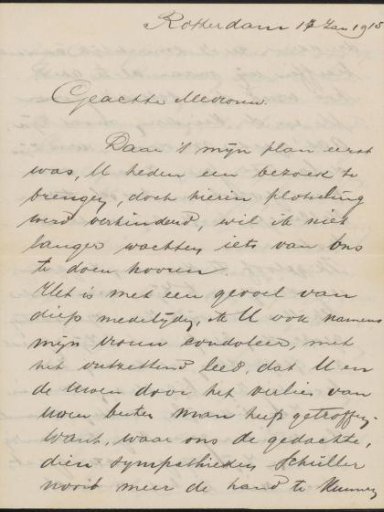 Rotterdam 17 Jan 1915
Geachte Mevrouw.
Daar 't mijn plan eerst
was, U heden een bezoek te
brengen, doch hierin plotseling
werd verhinderd, wil ik niet
langer wachten iets van ons
te doen hooren
Het is met een gevoel van
diep medelijden, dat U ook namens
mijn vrouw condoleer, met
het ontzettend leed, dat U en
de Uwen door het verlies van
Uwen besten man heeft getroffen.
Want, waar ons de gedachte,
dien sympathieken Schuller
nooit meer de hand te kunnen